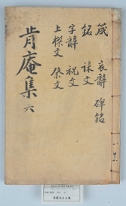 箴 哀辭 碑銘
銘 誄文
字辭 祝文
上樑文 祭文
肯庵集 六